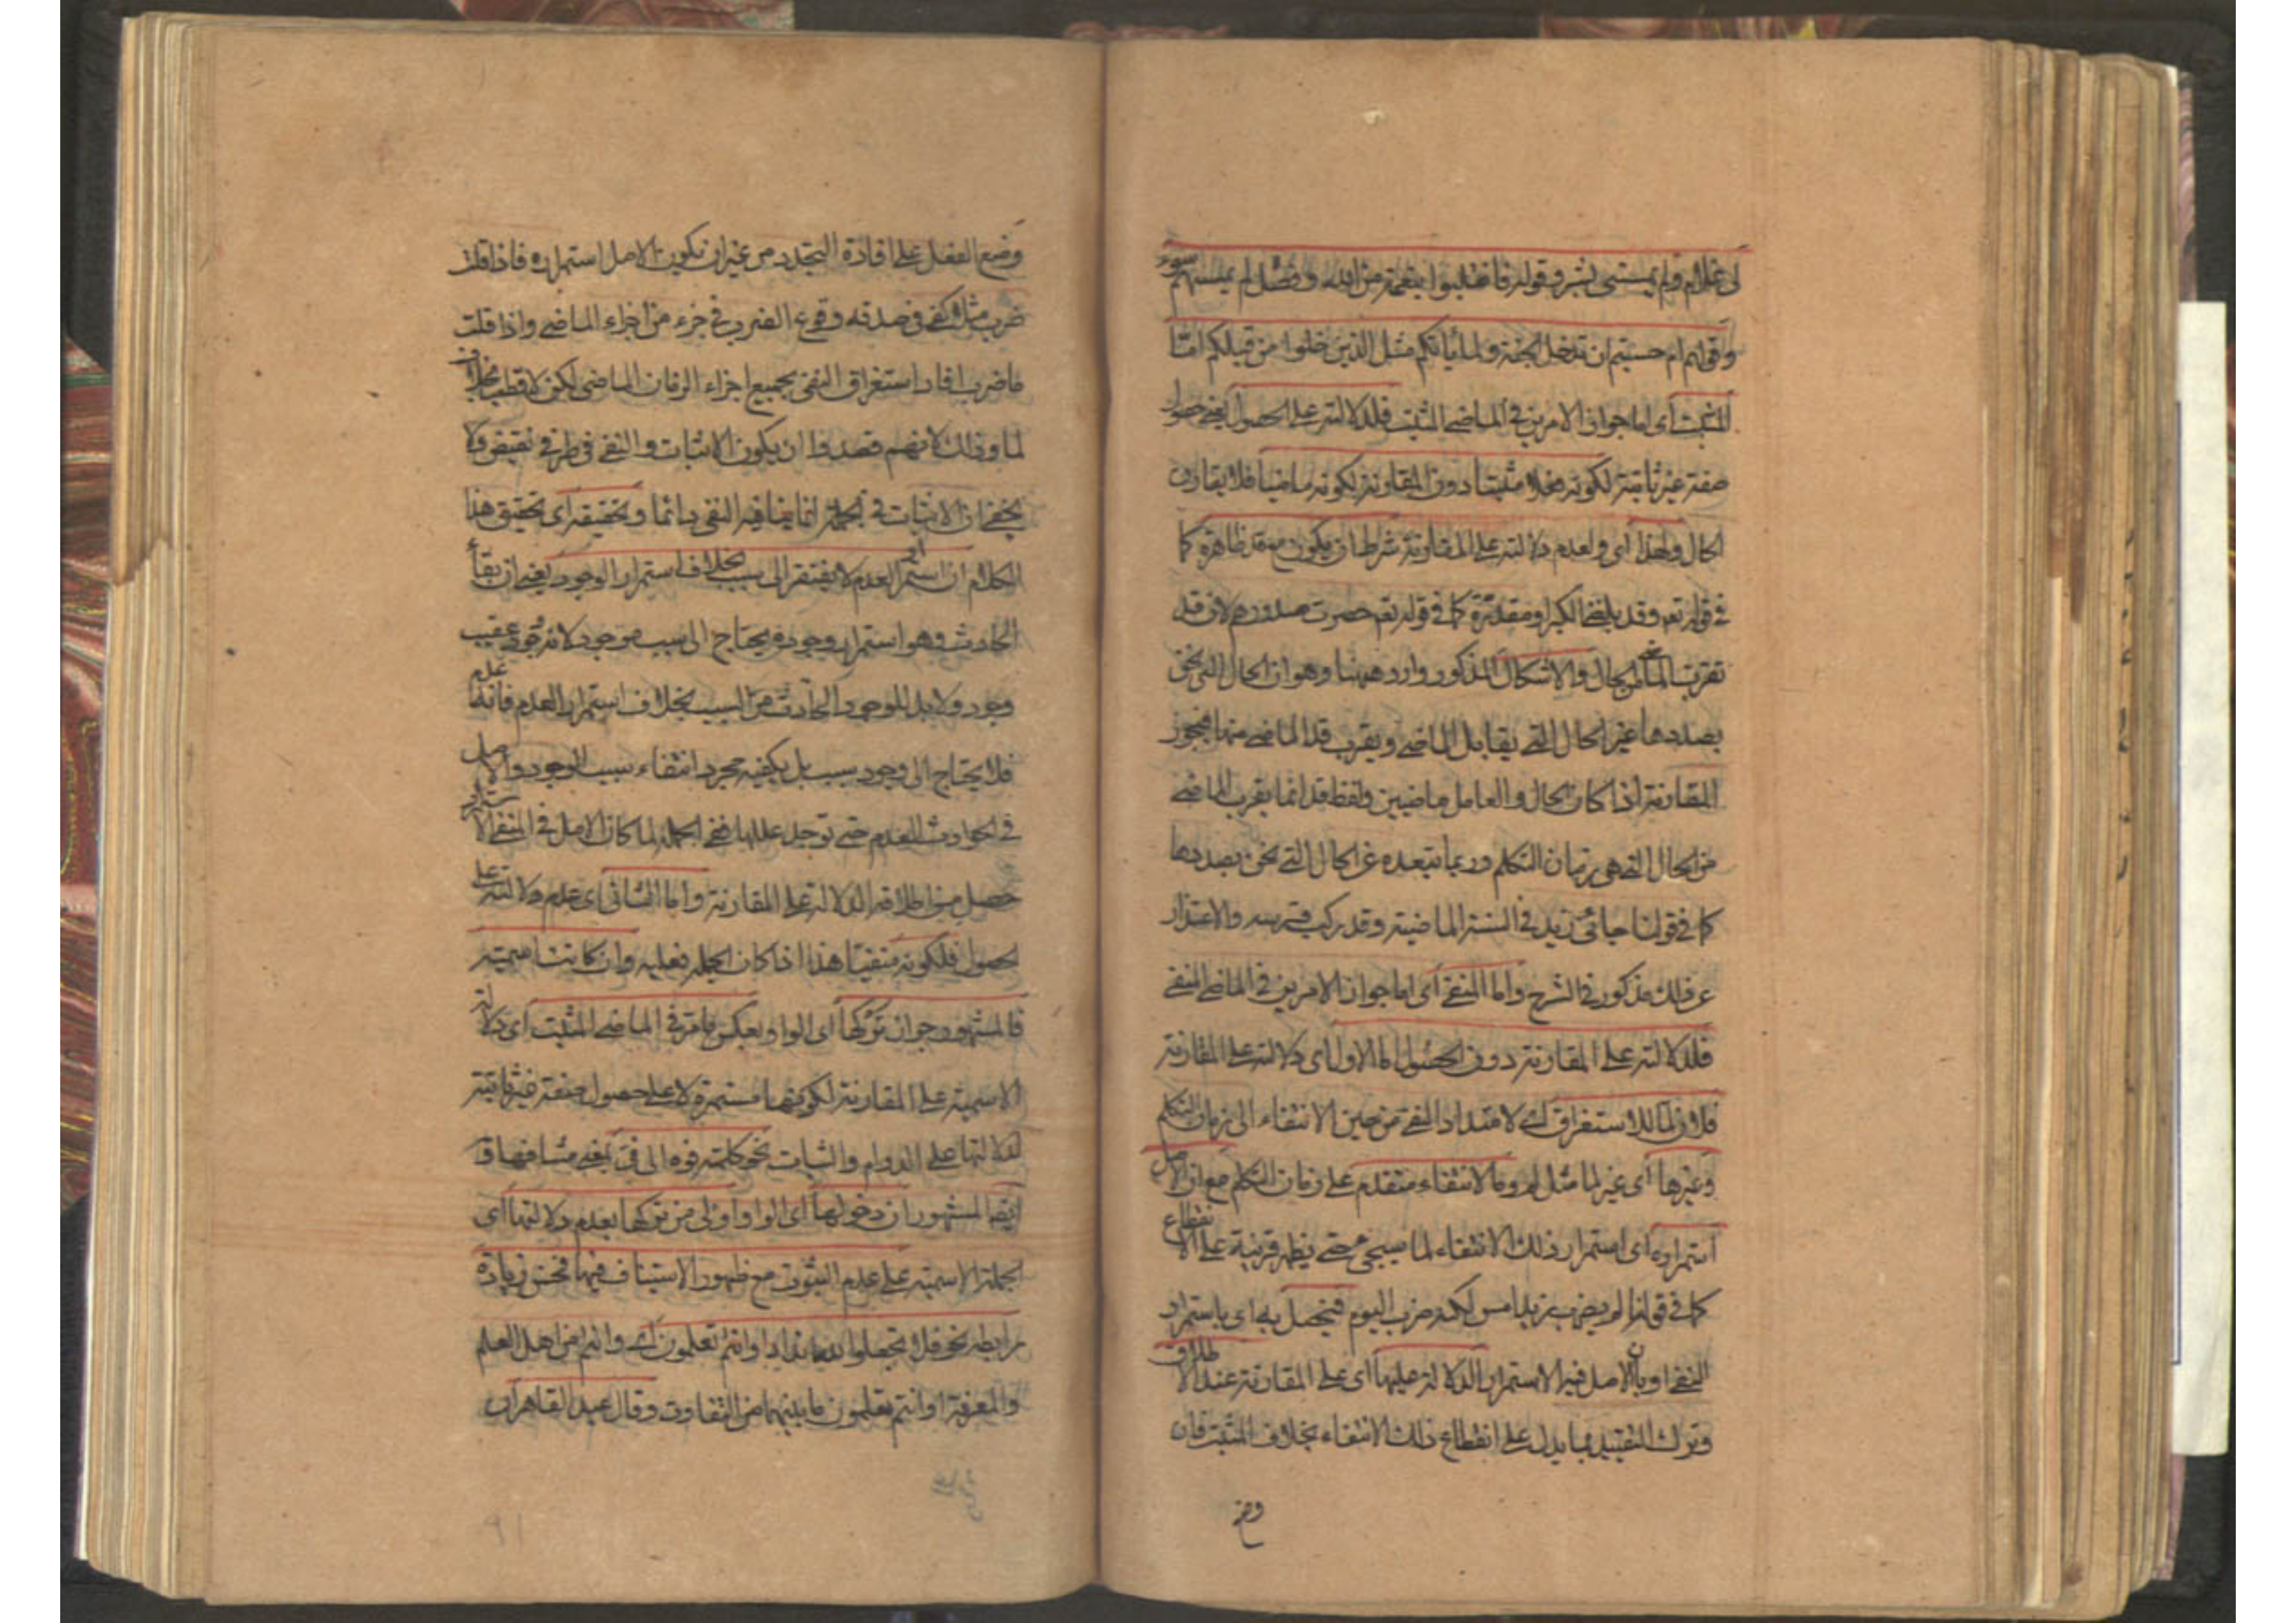 لى غلام ولم يمسسنى بشر وقوله فانقلبوا بنعمة من الله وفضل لم يمسسهم سوء
وقوله ام حسبتم ان تدخلوا الجنة ولما يأتكم مثل الذين خلوا من قبلكم امّا
المثبت اى اما جواز الامرين فى الماضى المثبت فلدلالته على الحصول يعنى حصول
صفة غير ثابتة لكونه فعلا مثبتا دون المقارنة لكونه ماضيا فلا يقارن
الحال ولهذا اى ولعدم دلالته على المقارنة شرط ان يكون مع قد ظاهرة كما
فى قوله تعه وقد بلغنى الكبر او مقدرة كما فى قوله تعه حصرت صدورهم لان قد
تقرب الماضى من الحال والاشكال المذكور وارد ههنا وهو ان الحال التى نحن
بصددها غير الحال التى يقابل الماضى ويقرب قد الماضى منها فيجوز
المقارنة اذا كان الحال والعامل ماضيين ولفظ قد انما يقرب الماضى
من الحال التى هى زمان التكلم وربما تبعده عن الحال التى نحن بصددها
كما فى قولنا جائنى زيد فى السنة الماضية وقد ركب فرسه والاعتذار
عن ذلك مذكور فى الشرح واما المنفى اى اما جواز الامرين فى الماضى المنفى
فلدلالته على المقارنة دون الحصول اما الاول اى دلالته على المقارنة
فلان لما للاستغراق اى لامتداد النفى من حين الانتفاء الى زمان التكلم
وغيرها اى غير لما مثل لم وما لانتفاء متقدم على زمان التكلم مع ان الاصل
استمراره اى استمرار ذلك الانتفاء لما سيجئ حتى يظهر قرينة على الانقطاع
كما فى قولنا لم يضرب زيد امس لكنه ضرب اليوم فيحصل به اى باستمرار
النفى او بان الاصل فيه الاستمرار الدلالة عليها اى على المقارنة عند الاطلاق
وترك التقييد بما يدل على انقطاع ذلك الانتفاء بخلاف المثبت فان
وضع
وضع الفعل على افادة التجدد من غير ان يكون الاصل استمراره فاذا قلت
ضرب مثلا كفى فى صدقه وقوع الضرب فى جزء من اجزاء الماضى واذا قلت
ما ضرب افاد استغراق النفى بجميع اجزاء الزمان الماضى لكن لا قطعيا بخلاف
لما وذلك لانهم قصدوا ان يكون الاثبات والنفى فى طرفى نقيض ولا
يخفى ان الاثبات فى الجملة انما ينافيه النفى دائما وتحقيقه اى تحقيق هذا
الكلام ان استمرار العدم لا يفتقر الى سبب بخلاف استمرار الوجود يعنى ان بقاء
الحادث وهو استمرار وجوده يحتاج الى سبب موجود لانه وجود عقيب
وجود ولا بد للموجود الحادث من السبب بخلاف استمرار العدم فانه عدم
فلا يحتاج الى وجود سبب بل يكفيه مجرد انتفاء سبب الوجود والاصل
فى الحوادث العدم حتى توجد عللها ففى الجملة لما كان الاصل فى المنفى الاستمرار
حصل من اطلاقه الدلالة على المقارنة واما الثانى اى عدم دلالته على
الحصول فلكونه منفيّا هذا اذا كان الجملة فعلية وان كانت اسمية
فالمشهور جواز تركها اى الواو لعكس ما مر فى الماضى المثبت اى دلالة
الاسمية على المقارنة لكونها مستمرة لا على حصول صفة غير ثابتة
لدلالتها على الدوام والثبات نحو كلمته فوه الى فىّ بمعنى مشافها و
ايضا المشهور ان دخولها اى الواو اولى من تركها لعدم دلالتها اى
الجملة الاسمية على عدم الثبوت مع ظهور الاستيناف فيها فحسن زيادة
رابطة نحو فلا تجعلوا لله اندادا وانتم تعلمون اى وانتم من اهل العلم
والمعرفة او انتم تعلمون ما بينهما من التفاوت وقال عبد القاهر ان
٩١